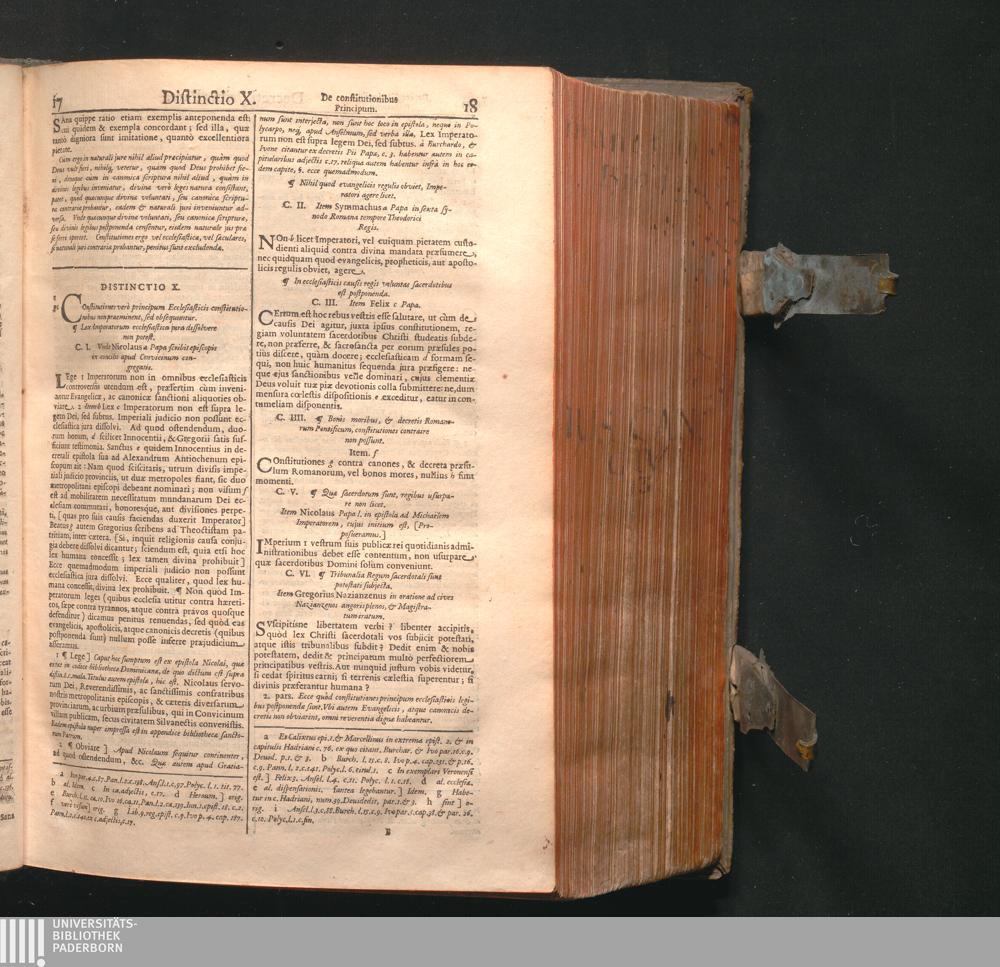 17
Distinctio X.
De constitutionibus
Principum.
18
SAna quippe ratio etiam exemplis anteponenda est:
cui quidem & exempla concordant; sed illa, quæ
tantò digniora sunt imitatione, quantò excellentiora
pietate.
Cùm ergo in naturali jure nihil aliud præcipiatur, quàm quod
Deus vult fieri, nihilq; vetetur, quàm quod Deus prohibet fie-
ri, denique cùm in canonica scriptura nihil aliud, quàm in
divinis legibus inveniatur, divinæ verò leges natura consistant,
patet, quòd quæcunque divinæ voluntati, seu canonicæ scriptu-
ræ contraria probantur, eadem & naturali juri inveniuntur ad-
versa. Unde quæcunque divinæ voluntati, seu canonicæ scripturæ,
seu divinis legibus postponenda censentur, eisdem naturale jus præ-
ferri oportet. Constitutiones ergo vel ecclesiasticæ, vel sæculares,
si naturali juri contrariæ probantur, penitus sunt excludendæ.
DISTINCTIO X.
COnstitutiones verò principum Ecclesiasticis constitutio-
nibus non præeminent, sed obsequuntur.
¶ Lex Imperatorum ecclesiastica jura dissolvere
non potest.
C. I. Unde Nicolaus a Papa scribit episcopis
in concilio apud Convicinum con-
gregatis.
LEge 1 Imperatorum non in omnibus ecclesiasticis
controversiis utendum est, præsertim cùm inveni-
antur Evangelicæ, ac canonicæ sanctioni aliquoties ob-
viare. 2 Lex c Imperatorum non est supra le-
gem Dei, sed subtus. Imperiali judicio non possunt ec-
clesiastica jura dissolvi. Ad quod ostendendum, duo-
rum bonum, d scilicet Innocentii, & Gregorii satis suf-
ficiunt testimonia. Sanctus e quidem Innocentius in de-
cretali epistola sua ad Alexandrum Antiochenum epi-
scopum ait: Nam quod sciscitatis, utrum divisis impe-
riali judicio provinciis, ut duæ metropoles fiant, sic duo
metropolitani episcopi debeant nominari; non visum f
est ad mobilitatem necessitatum mundanarum Dei ec-
clesiam commutari, honoresque, aut divisiones perpe-
ti, [quas pro suis causis faciendas duxerit Imperator]
Beatus g autem Gregorius scribens ad Theoctistam pa-
tritiam, inter cætera. [Si, inquit religionis causa conju-
gia debere dissolvi dicantur; sciendum est, quia etsi hoc
lex humana concessit; lex tamen divina prohibuit]
Ecce quemadmodum imperiali judicio non possunt
ecclesiastica jura dissolvi. Ecce qualiter, quod lex hu-
mana concessit, divina lex prohibuit. ¶ Non quòd Im-
peratorum leges (quibus ecclesia utitur contra hæreti-
cos, sæpe contra tyrannos, atque contra pravos quosque
defenditur) dicamus penitus renuendas, sed quòd eas
evangelicis, apostolicis, atque canonicis decretis (quibus
postponenda sunt) nullum posse inferre præjudicium
asseramus.
1 ¶ Lege] Caput hoc sumptum est ex epistola Nicolai, quæ
extat in codice bibliothecæ Dominicanæ, de quo dictum est supra
Titulus autem epistolæ, hic est. Nicolaus servo-
rum Dei, Reverendissimis, ac sanctissimis confratribus
nostris metropolitanis episcopis, & cæteris diversarum
provinciarum, ac urbium præsulibus, qui in Convicinum
villam publicam, secus civitatem Silvanectis convenistis.
Eadem epistola nuper impressa est in appendice bibliothecæ sancto-
rum Patrum.
2 ¶ Obviare] Apud Nicolaum sequitur continenter,
ad quod ostendendum, &c. Quæ autem apud Gratia-
num sunt interjecta, non sunt hoc loco in epistola, neque in Po-
lycarpo, neq; apud Anselmum, sed verba illa, Lex Imperato-
rum non est supra legem Dei, sed subtus. à Burchardo, &
Ivone citantur ex decretis Pii Papæ, c. 3. habentur autem in ca-
pitularibus adjectis c. 17. reliqua autem habentur infrà in hoc eo-
dem capite, §. ecce quemadmodum.
¶ Nihil quod evangelicis regulis obviet, Impe-
ratori agere licet.
C. II. Item Symmachus a Papa in sexta sy-
nodo Romana tempore Theodorici
Regis.
NOn b licet Imperatori, vel cuiquam pietatem custo-
dienti aliquid contra divina mandata præsumere,
nec quidquam quod evangelicis, propheticis, aut aposto-
licis regulis obviet, agere.
¶ In ecclesiasticis causis regis voluntas sacerdotibus
est postponenda.
C. III. Item Felix c Papa.
CErtum est hoc rebus vestris esse salutare, ut cùm de
causis Dei agitur, juxta ipsius constitutionem, re-
giam voluntatem sacerdotibus Christi studeatis subde-
re, non præferre, & sacrosancta per eorum præsules po-
tius discere, quàm docere; ecclesiasticam d formam se-
qui, non huic humanitus sequenda jura præfigere: ne-
que ejus sanctionibus velle dominari, cujus clementiæ
Deus voluit tuæ piæ devotionis colla submittere: ne, dum
mensura cœlestis dispositionis e exceditur, eatur in con-
tumeliam disponentis.
C. IIII. ¶ Bonis moribus, & decretis Romano-
rum Pontificum, constitutiones contrariæ
non possunt.
Item. f
COnstitutiones g contra canones, & decreta præsu-
lum Romanorum, vel bonos mores, nullius h sunt
momenti.
C. V. ¶ Quæ sacerdotum sunt, regibus usurpa-
re non licet.
Item Nicolaus Papa I. in epistola ad Michaëlem
Imperatorem, cujus initium est, [Pro-
posueramus.]
IMperium i vestrum suis publicæ rei quotidianis admi-
nistrationibus debet esse contentum, non usurpare
quæ sacerdotibus Domini solùm conveniunt.
C. VI. ¶ Tribunalia Regum sacerdotali sunt
potestati subjecta.
Item Gregorius Nazianzenus in oratione ad cives
Nazianzenos angoris plenos, & Magistra-
tum iratum.
SUscipitisne libertatem verbi? libenter accipitis,
quòd lex Christi sacerdotali vos subjicit potestati,
atque istis tribunalibus subdit? Dedit enim & nobis
potestatem, dedit & principatum multo perfectiorem
principatibus vestris. Aut nunquid justum vobis videtur,
si cedat spiritus carni; si terrenis cælestia superentur; si
divinis præferantur humana?
2. pars. Ecce quòd constitutiones principum ecclesiasticis legi-
bus postponendæ sunt. Ubi autem Evangelicis, atque canonicis de-
cretis non obviarint, omni reverentia dignæ habeantur.
a Ivo par. 4. c. 187. Pan. l. 2. c. 138. Ansel. l. 1. c. 97. Polyc. l. 1. tit. 77.
b al. Idem. c In ca. adjectis, c. 17. d Horoum.] orig.
e Burch. l. 2. ca. 11. Ivo
f verò visum] orig. g Lib. 9. reg. epist. c. 9. Ivo p. 4. cap. 187.
a Ex Calixtus epi. 1. & Marcellinus in extrema epist. 2. & in
capitulis Hadriani c. 76. ex quo citant, Burchar. & Ivo par. 16. c. 9.
Deusd. p. 1. & 3. b Burch. l. 15. c. 8. Ivo p. 4. cap. 231. & p. 16.
c. 9. Pann. l. 2. c. 141. Polyc. l. 6. titul. 1. c In exemplari Veronensi
est.] Felix 9. Ansel. l. 4. c. 11. Polyc. l. 1. c. 18. d al. ecclesiæ.
e al. dispensationis, sautea legebantur.] Idem. g Habe-
tur in c. Hadriani, num. 39. Deusdedit, par. 1. & 3. h sint] o-
rig. i Ansel. l. 3. c. 88. Burch. l. 15. c. 9. Ivo par. 5. cap. 38. & par. 26.
c. 10. Polyc. l. 1. c. fin.
B
UNIVERSITÄTS-
BIBLIOTHEK
PADERBORN